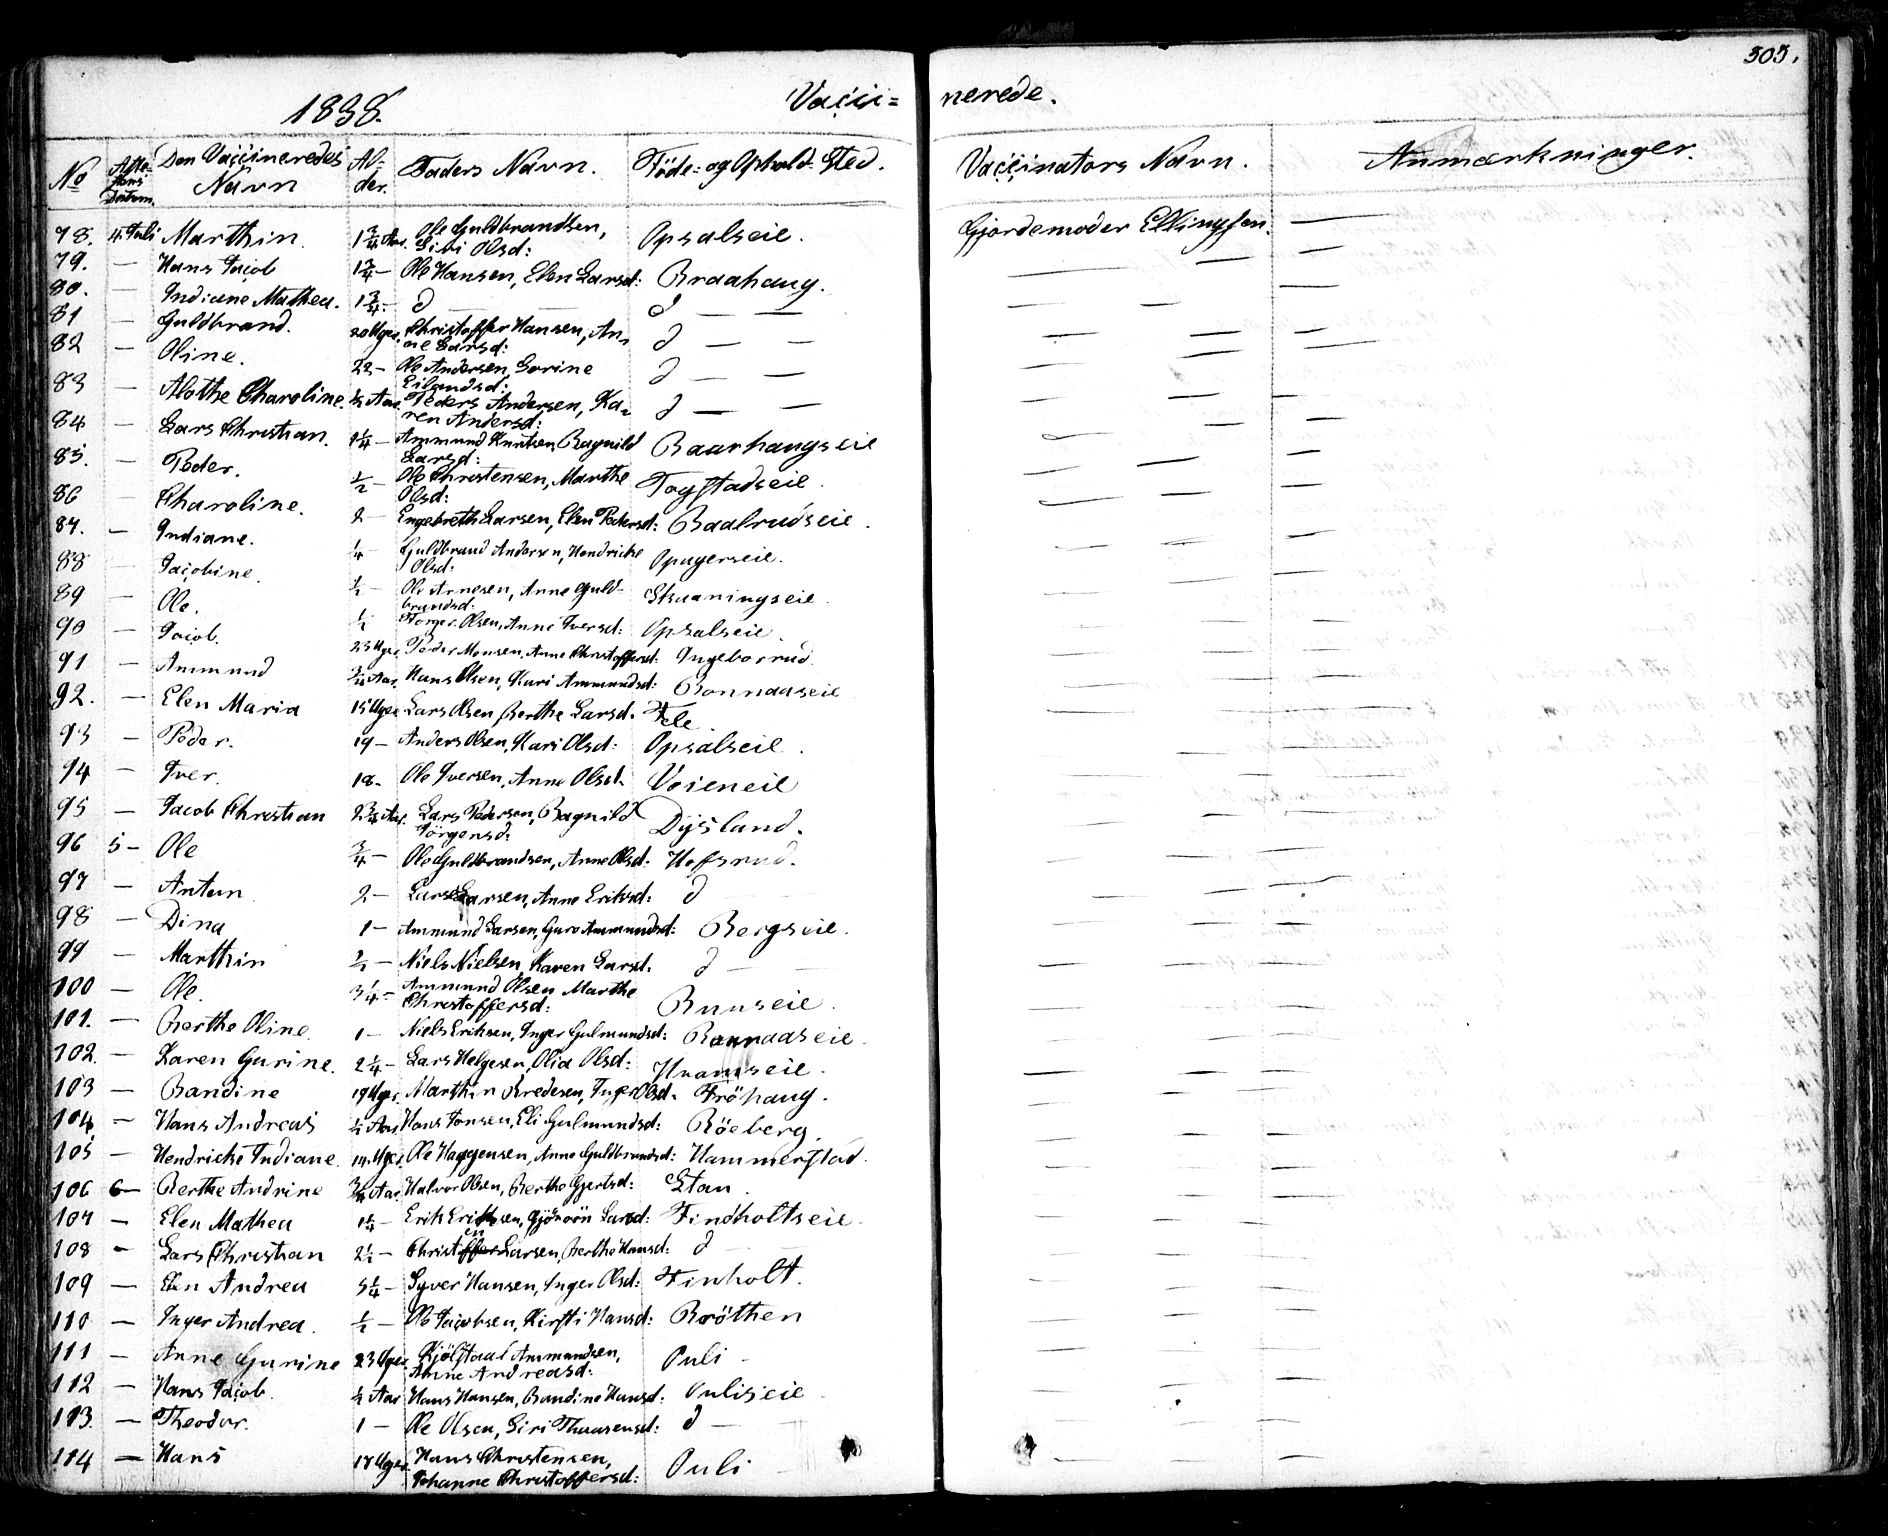 303.
1838. Vacci= nerede.
No Atte- stens Datum. Den Vaccineredes Navn Al- der. Faders Navn. Föde- og Ophold-Sted. Vaccinators Navn. Anmærkninger.
78. 4 Juli Marthin. 1 3/4 Aar. Ole Guldbrandsen, Siri Olsd: Opsalseie. Gjordemoder Ellingsen. —
79. — Hans Jacob 1 3/4 — Ole Hansen, Elen Larsd: Braahaug. — — —
80. — Indiane Mathea. 1 3/4 — d — d — — — —
81 — Guldbrand. 20 Uger. Christoffer Hansen, An- ne Larsd: d — — — — —
82 — Oline. 22 — Ole Andersen, Sorine Eilendsd: d — — — — —
83 — Alethe Charoline. 1/2 Aar. Peders Andersen, Ka- ren Andersd: d — — — — —
84 — Lars Christian. 1 1/4 — Ammund Knutsen, Ragnild Larsd: Baarhaugseie — — —
85. — Peder. 1/2 — Ole Christensen, Marthe Olsd: Togstadseie. — — —
86 — Charoline. 2 — Engebreth Larsen, Elen Pedersd: Baalrudseie. — — —
87. — Indiane. 1/4 — Guldbrand Andersen, Hendricke Olsd: Opagerseie. — — —
88 — Jacobine. 1/2 — Ole Arnesen, Anne Guld- brandsd: Skaaningseie. — — —
89 — Ole. 1/2 Torger Olsen, Anne Iversd: Opsalseie. — — —
90 — Jacob. 23 Uger Peder Monsen, Anne Christoffersd: Ingeborrud. — — —
91 — Ammund 3/4 Aar. Hans Olsen, Kari Ammundsd: Bonnaaseie — — —
92. — Elen Maria 15 Uger Lars Olsen, Berthe Larsd. Fele — — —
93 — Peder. 19 — Anders Olsen, Kari Olsd: Opsalseie. — — —
94 — Iver. 18 — Ole Iversen, Anne Olsd. Voieneie — — —
95 — Jacob Christian 2 3/4 Aar. Lars Pedersen, Ragnild Jörgensd: Dysland. — — —
96 5 — Ole 3/4 — Ole Guldbrandsen, Anne Olsd: Hoffsrud. — — —
97 — Anton 2 — Lars Larsen, Anne Eriksd: d — — —
98 — Dina 1 — Ammund Larsen, Guro Ammundsd: Bergseie. — — —
99 — Marthin 1/2 — Niels Nielsen, Karen Larsd. d — — — —
100 — Ole. 3 1/4 — Ammund Olsen Marthe Christoffersd: Ruuseie. — — —
101. — Berthe Oline. 1 — Niels Eriksen, Inger Gulmundsd: Bonnaaseie. — — —
102. — Karen Gurine. 2 1/4 — Lars Helgesen, Olia Olsd: Hvamseie. — — —
103 — Bandine 19 Uger. Marthin Fredesen, Inger Olsd. Fröhaug. — — —
104 — Hans Andreas 1/2 Aar Hans Jonsen, Eli Gulmundsd: Röeberg. — — —
105 — Hendricke Indiane. 14 Uger. Ole Haggensen, Anne Guldbrandsd: Hammerstad. — — —
106 6 — Berthe Andrine 3/4 Aar Halvor Olsen, Berthe Gjertsd: Stan. — — —
107 — Elen Mathea 1 1/4 — Erik Eriksen, Gjörvön Larsd: Findholtseie. — — —
108 — Lars Christian 2 1/2 — Christen Larsen, Berthe Hansd: d — — — —
109 — Elen Andrea 3 1/4 — Syver Hansen, Inger Olsd: Finholt. — — —
110 — Inger Andrea. 1/2 — Ole Jacobsen, Kirsti Hansd: Bröthen — — —
111 — Anne Gurine 23 Uger Kjölstaal Ammundsen, Anne Andreasd: Puli — — —
112 — Hans Jacob. 1/2 Aar Hans Hansen, Bandine Hansd: Puliseie — — —
113. — Theodor. 1 — Ole Olsen, Siri Thaasensd: d — — — —
114 — Hans 17 Uger. Hans Christensen, Johanne Christoffersd: Puli — — —